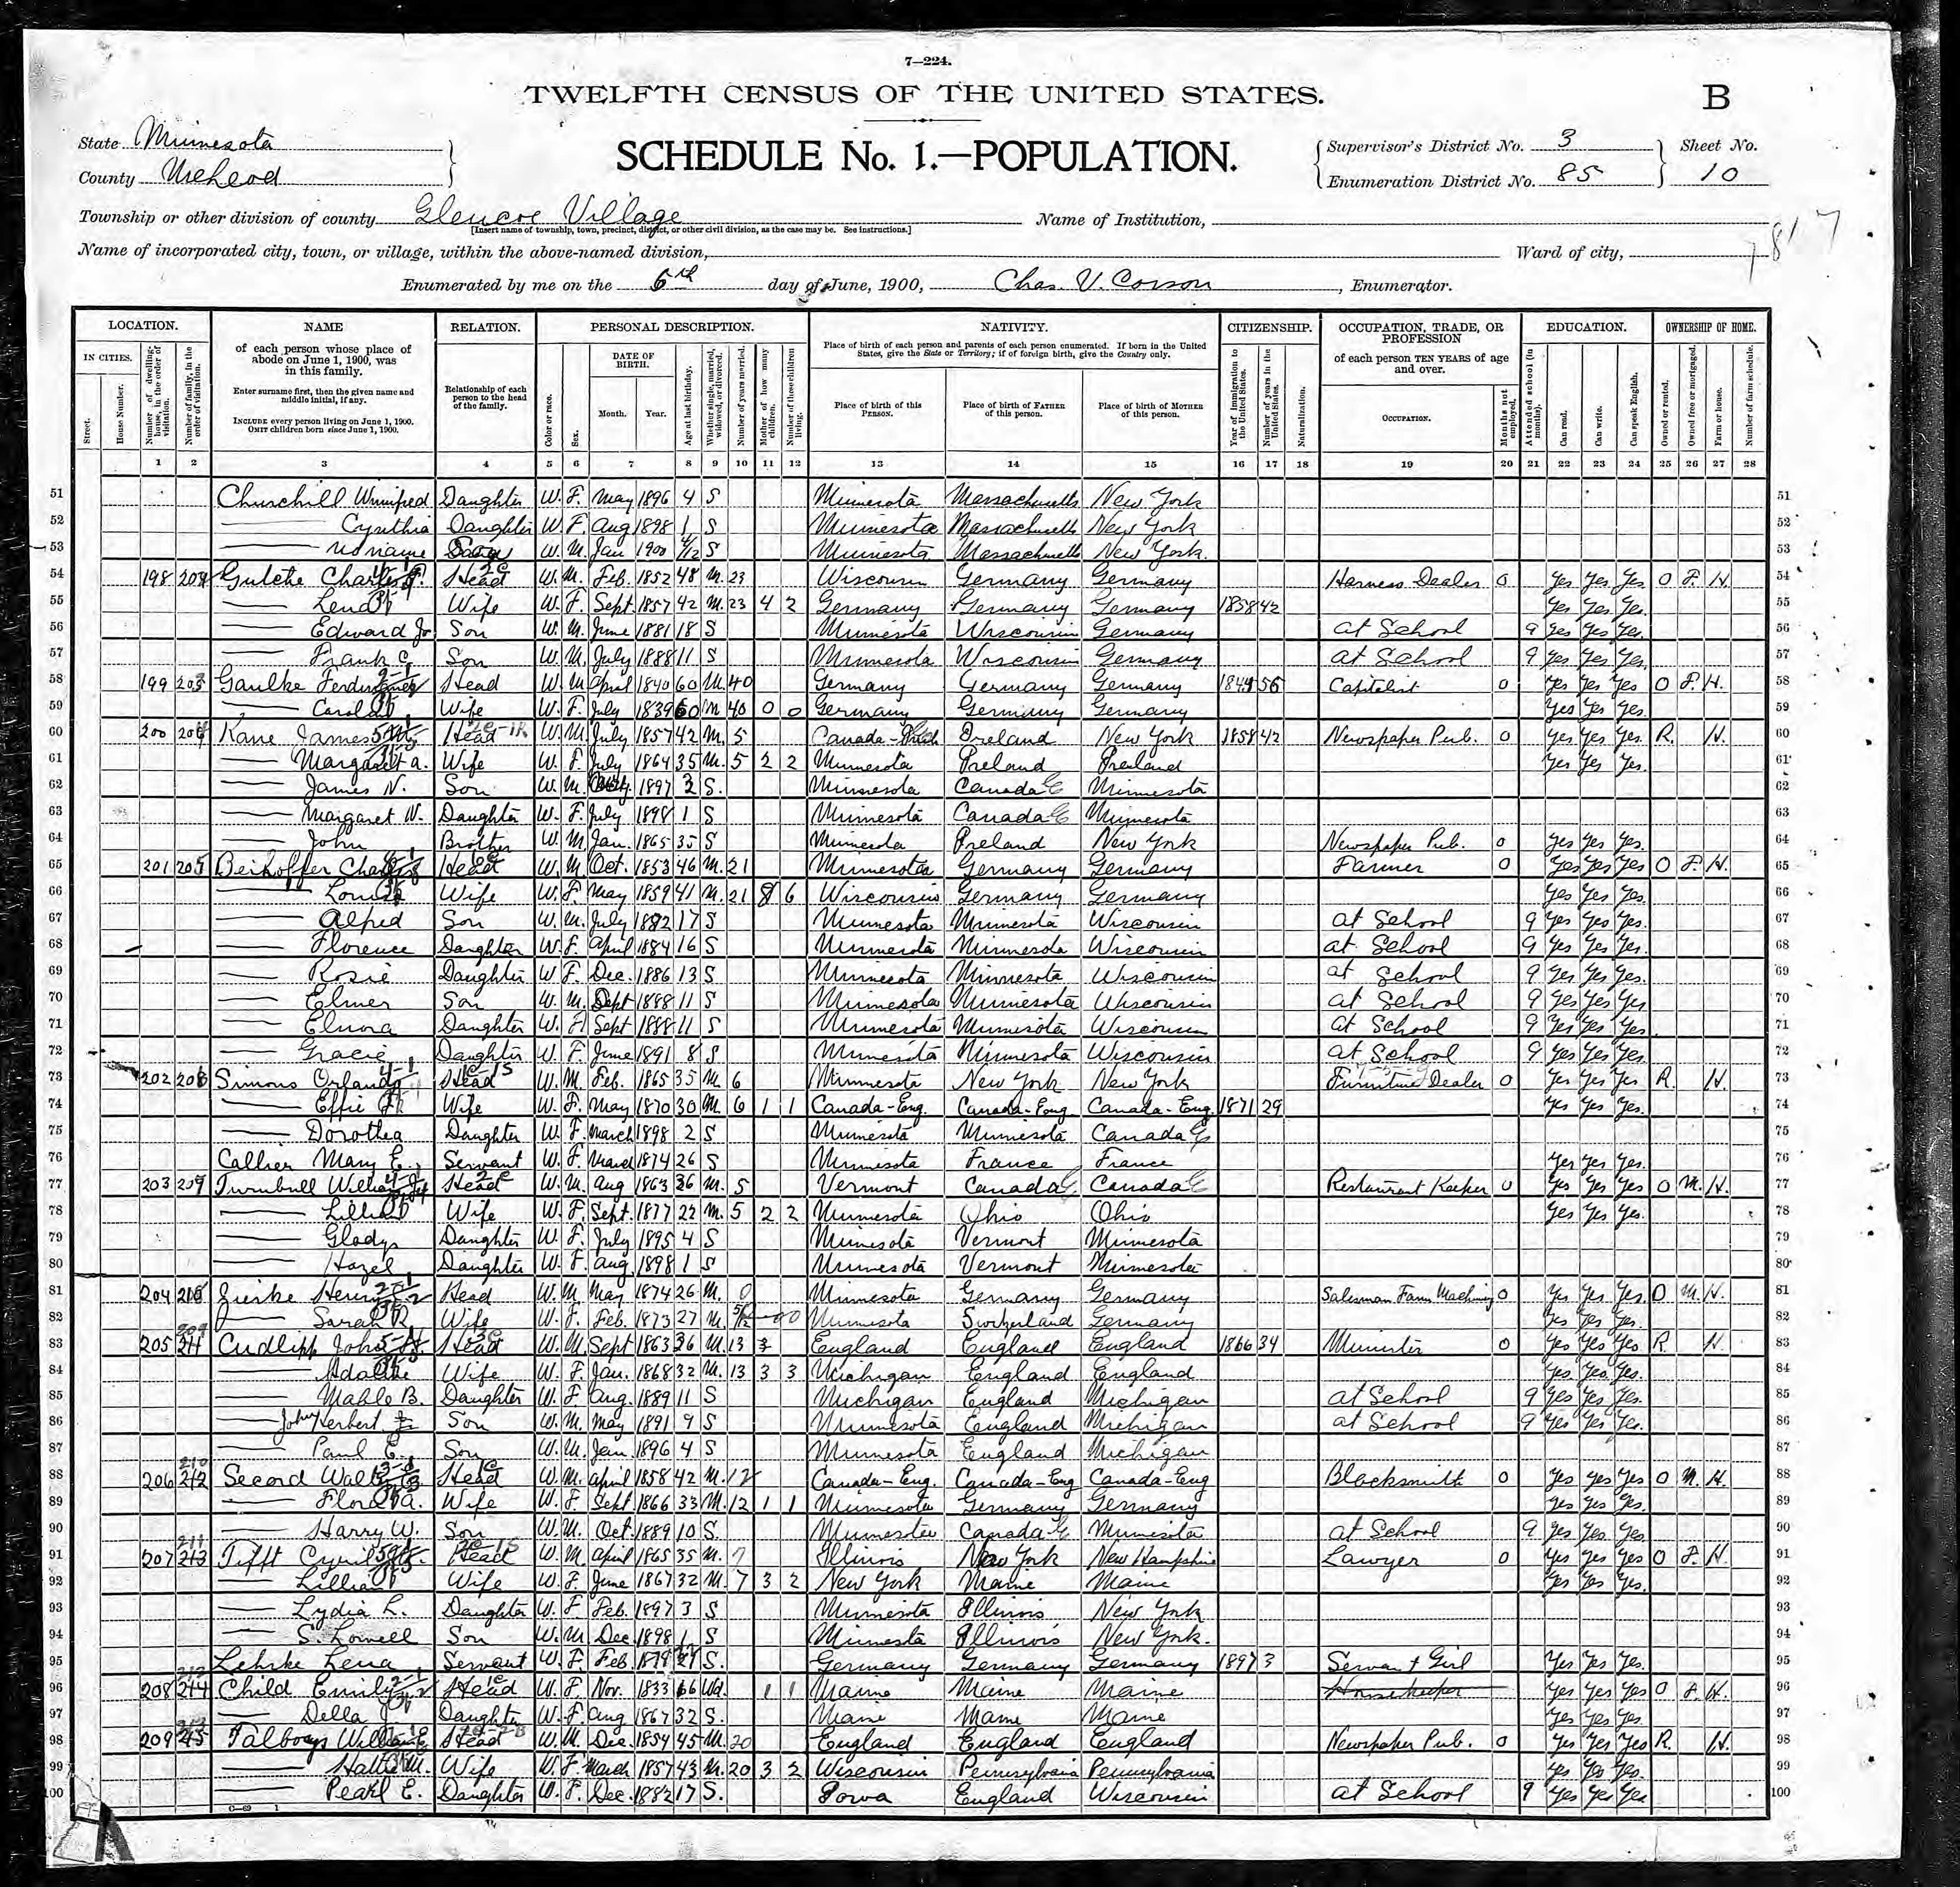 7—224.
TWELFTH CENSUS OF THE UNITED STATES.
B
State Minnesota
SCHEDULE No. 1.—POPULATION.
Supervisor's District No. 3
Sheet No.
County McLeod
Enumeration District No. 85
10
Township or other division of county Glencoe Village
Name of Institution,
[Insert name of township, town, precinct, district, or other civil division, as the case may be. See instructions.]
Name of incorporated city, town, or village, within the above-named division,
Ward of city,
Enumerated by me on the 6th day of June, 1900, Chas. V. Corson, Enumerator.
LOCATION. NAME RELATION. PERSONAL DESCRIPTION. NATIVITY. CITIZENSHIP. OCCUPATION, TRADE, OR PROFESSION EDUCATION. OWNERSHIP OF HOME.
IN CITIES.
Street.
House Number.
Number of dwelling-house, in the order of visitation.
Number of family, in the order of visitation.
of each person whose place of abode on June 1, 1900, was in this family.
Enter surname first, then the given name and middle initial, if any.
INCLUDE every person living on June 1, 1900.
OMIT children born since June 1, 1900.
Relationship of each person to the head of the family.
Color or race.
Sex.
DATE OF BIRTH.
Month. Year.
Age at last birthday.
Whether single, married, widowed, or divorced.
Number of years married.
Mother of how many children.
Number of these children living.
Place of birth of each person and parents of each person enumerated. If born in the United States, give the State or Territory; if of foreign birth, give the Country only.
Place of birth of this PERSON.
Place of birth of FATHER of this person.
Place of birth of MOTHER of this person.
Year of immigration to the United States.
Number of years in the United States.
Naturalization.
of each person TEN YEARS of age and over.
OCCUPATION.
Months not employed.
Attended school (in months).
Can read.
Can write.
Can speak English.
Owned or rented.
Owned free or mortgaged.
Farm or house.
Number of farm schedule.
1 2 3 4 5 6 7 8 9 10 11 12 13 14 15 16 17 18 19 20 21 22 23 24 25 26 27 28
51 Churchill Winnifred Daughter W. F. May 1896 4 S Minnesota Massachusetts New York 51
52 Cynthia Daughter W. F. Aug 1898 1 S Minnesota Massachusetts New York 52
53 No name W. M. Jan 1900 4/12 S Minnesota Massachusetts New York. 53
54 198 Gulche Head W. M. Feb. 1852 48 M. 23 Wisconsin Germany Germany Harness Dealer 0 Yes Yes Yes O F. H. 54
55 Wife W. F. Sept. 1857 42 M. 23 4 2 Germany Germany Germany 1858 42 Yes Yes Yes. 55
56 Edward Jr Son W. M. June 1881 18 S Minnesota Wisconsin Germany at School 9 Yes Yes Yes. 56
57 Frank C. Son W. M. July 1888 11 S Minnesota Wisconsin Germany at School 9 Yes Yes Yes. 57
58 199 Gaulke Head W. M. April 1840 60 M. 40 Germany Germany Germany 56 Capitalist 0 Yes Yes Yes O F. H. 58
59 Wife W. F. July 1839 60 M 40 0 0 Germany Germany Germany Yes Yes Yes. 59
60 200 Kane James Head W. M. July 1857 42 M. 5 Canada Ireland New York 1858 42 Newspaper Pub. 0 Yes Yes Yes R. H. 60
61 Margaret A. Wife W. F. July 1864 35 M. 5 2 2 Minnesota Ireland Ireland Yes Yes Yes. 61
62 James N. Son W. M. 1897 S. Minnesota Canada E Minnesota 62
63 Margaret W. Daughter W. F. July 1898 1 S Minnesota Canada E Minnesota 63
64 John Brother W. M. Jan. 1865 35 S Minnesota Ireland New York Newspaper Pub. 0 Yes Yes Yes. 64
65 201 205 Beihoffer Head W. M. Oct. 1853 46 M. 21 Minnesota Germany Germany Farmer 0 Yes Yes Yes O F. H. 65
66 Wife W. F. May 1859 41 M. 21 8 6 Wisconsin Germany Germany Yes Yes Yes. 66
67 Alfred Son W. M. July 1882 17 S Minnesota Minnesota Wisconsin at School 9 Yes Yes Yes. 67
68 Florence Daughter W. F. April 1884 16 S Minnesota Minnesota Wisconsin at School 9 Yes Yes Yes. 68
69 Rosie Daughter W F. Dec. 1886 13 S Minnesota Minnesota Wisconsin at School 9 Yes Yes Yes. 69
70 Elmer Son W. M. Sept 1888 11 S Minnesota Minnesota Wisconsin at School 9 Yes Yes Yes 70
71 Elnora Daughter W. F. Sept 1888 11 S Minnesota Minnesota Wisconsin at School 9 Yes Yes Yes. 71
72 Gracie Daughter W. F. June 1891 8 S Minnesota Minnesota Wisconsin at School 9 Yes Yes Yes 72
73 202 206 Simons Orlando Head W. M. Feb. 1865 35 M. 6 Minnesota New York New York Furniture Dealer 0 Yes Yes Yes R. H. 73
74 Effie Wife W. F. May 1870 30 M. 6 1 1 Canada-Eng. Canada-Eng Canada-Eng. 1871 29 Yes Yes Yes. 74
75 Dorothea Daughter W. F. March 1898 2 S Minnesota Minnesota Canada E 75
76 Callier Mary E. Servant W. F. March 1874 26 S Minnesota France France Yes Yes Yes. 76
77 203 207 Turnbull Head W. M. Aug 1863 36 M. 5 Vermont Canada E Canada E Restaurant Keeper 0 Yes Yes Yes O M. H. 77
78 Wife W. F. Sept. 1877 22 M. 5 2 2 Minnesota Ohio Ohio Yes Yes Yes. 78
79 Gladys Daughter W. F. July 1895 4 S Minnesota Vermont Minnesota 79
80 Hazel Daughter W. F. Aug. 1898 1 S Minnesota Vermont Minnesota 80
81 204 Henry Head W. M May 1874 26 M. 0 Minnesota Germany Germany Salesman Farm Machinery 0 Yes Yes Yes. O M. H. 81
82 Sarah Wife W. F. Feb. 1873 27 M. 5/12 0 Minnesota Switzerland Germany Yes Yes Yes. 82
83 205 209 Cudlipp John Head W. M. Sept 1863 36 M. 13 England England England 1866 34 Minister 0 Yes Yes Yes R. H. 83
84 Wife W. F. Jan. 1868 32 M. 13 3 3 Michigan England England Yes. Yes. Yes. 84
85 Mable B. Daughter W. F. Aug. 1889 11 S Michigan England Michigan at School 9 Yes Yes Yes. 85
86 John Herbert Son W. M. May 1891 9 S Minnesota England Michigan at School 9 Yes Yes Yes. 86
87 Paul E Son W. M. Jan. 1896 4 S Minnesota England Michigan 87
88 206 210 Secord Head W. M. April 1858 42 M. 12 Canada-Eng. Canada-Eng Canada-Eng Blacksmith 0 Yes Yes Yes O M. H. 88
89 Wife W. F. Sept 1866 33 M. 12 1 1 Minnesota Germany Germany Yes Yes Yes. 89
90 Harry W. Son W. M. Oct. 1889 10 S. Minnesota Canada E Minnesota at School 9 Yes Yes. Yes 90
91 207 211 Tifft Head W. M April 1865 35 M. 7 Illinois New York New Hampshire Lawyer 0 Yes Yes Yes O F. H. 91
92 Wife W. F. June 1867 32 M. 7 3 2 New York Maine Maine Yes Yes Yes. 92
93 Lydia L. Daughter W. F Feb. 1897 3 S Minnesota Illinois New York 93
94 S. Lowell Son W. M. Dec. 1898 1 S Minnesota Illinois New York. 94
95 Lehrke Lena Servant W. F. Feb. 1879 21 S. Germany Germany Germany 1897 3 Servant Girl Yes Yes Yes. 95
96 208 212 Child Emily Head W. F. Nov. 1833 66 Wd. 1 1 Maine Maine Maine Housekeeper Yes Yes Yes O F. H. 96
97 Della Daughter W. F. Aug 1867 32 S. Maine Maine Maine Yes Yes Yes. 97
98 209 213 Talboys Head W. M. Dec. 1854 45 M. 20 England England England Newspaper Pub. 0 Yes Yes Yes R. H. 98
99 Wife W. F. March 1857 43 M. 20 3 2 Wisconsin Pennsylvania Pennsylvania Yes Yes Yes. 99
100 Pearl E. Daughter W. F. Dec. 1882 17 S. Iowa England Wisconsin at School 9 Yes Yes Yes 100